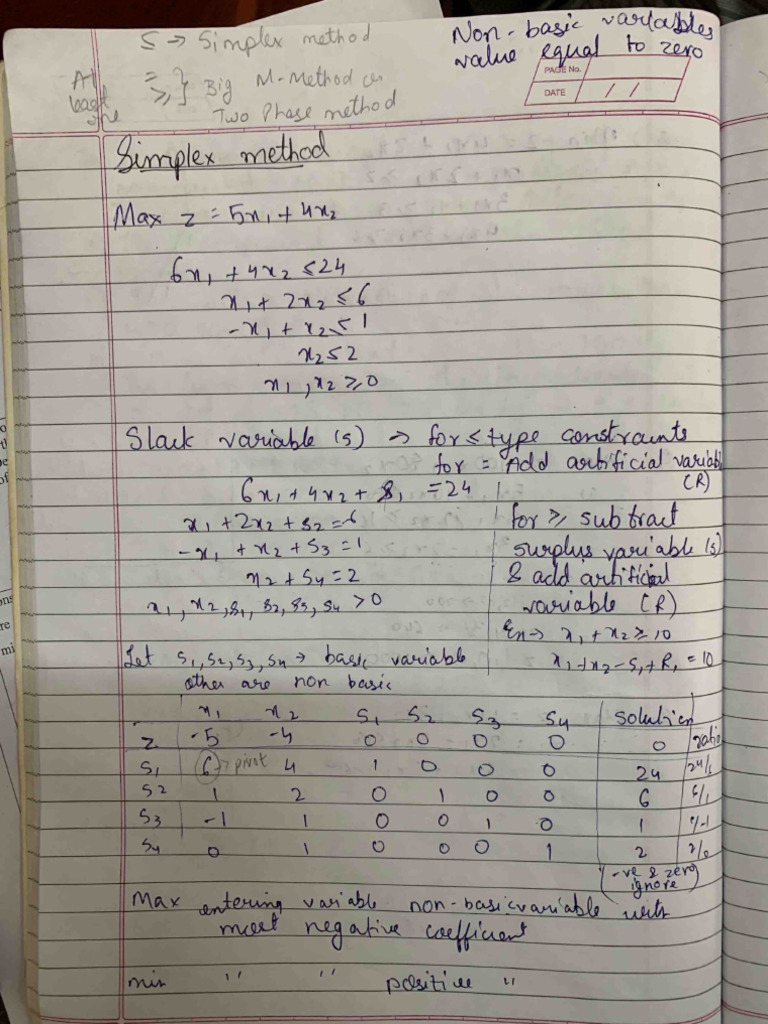 S → Simplex method
Non-basic variables
value equal to zero
At
least
one
=
≥
} Big M-Method or
Two Phase method
PAGE No.
DATE / /
Simplex method
Max z = 5x₁ + 4x₂
6x₁ + 4x₂ ≤ 24
x₁ + 2x₂ ≤ 6
-x₁ + x₂ ≤ 1
x₂ ≤ 2
x₁, x₂ ≥ 0
Slack variable (s) → for ≤ type constraints
for = Add artificial variabl
(R)
6x₁ + 4x₂ + s₁ = 24
x₁ + 2x₂ + s₂ = 6
-x₁ + x₂ + s₃ = 1
x₂ + s₄ = 2
x₁, x₂, s₁, s₂, s₃, s₄ > 0
for ≥ subtract
surplus variable (s)
& add artificial
variable (R)
Ex → x₁ + x₂ ≥ 10
x₁ + x₂ - s₁ + R₁ = 10
Let s₁, s₂, s₃, s₄ → basic variable
other are non basic
x₁ x₂ s₁ s₂ s₃ s₄ solution
z -5 -4 0 0 0 0 0 ratio
s₁ 6 → pivot 4 1 0 0 0 24 24/6
s2 1 2 0 1 0 0 6 6/1
s₃ -1 1 0 0 1 0 1 1/-1
s₄ 0 1 0 0 0 1 2 2/0
(-ve & zero
ignore)
Max entering variable non-basic variable with
most negative coefficient
min " " positive "